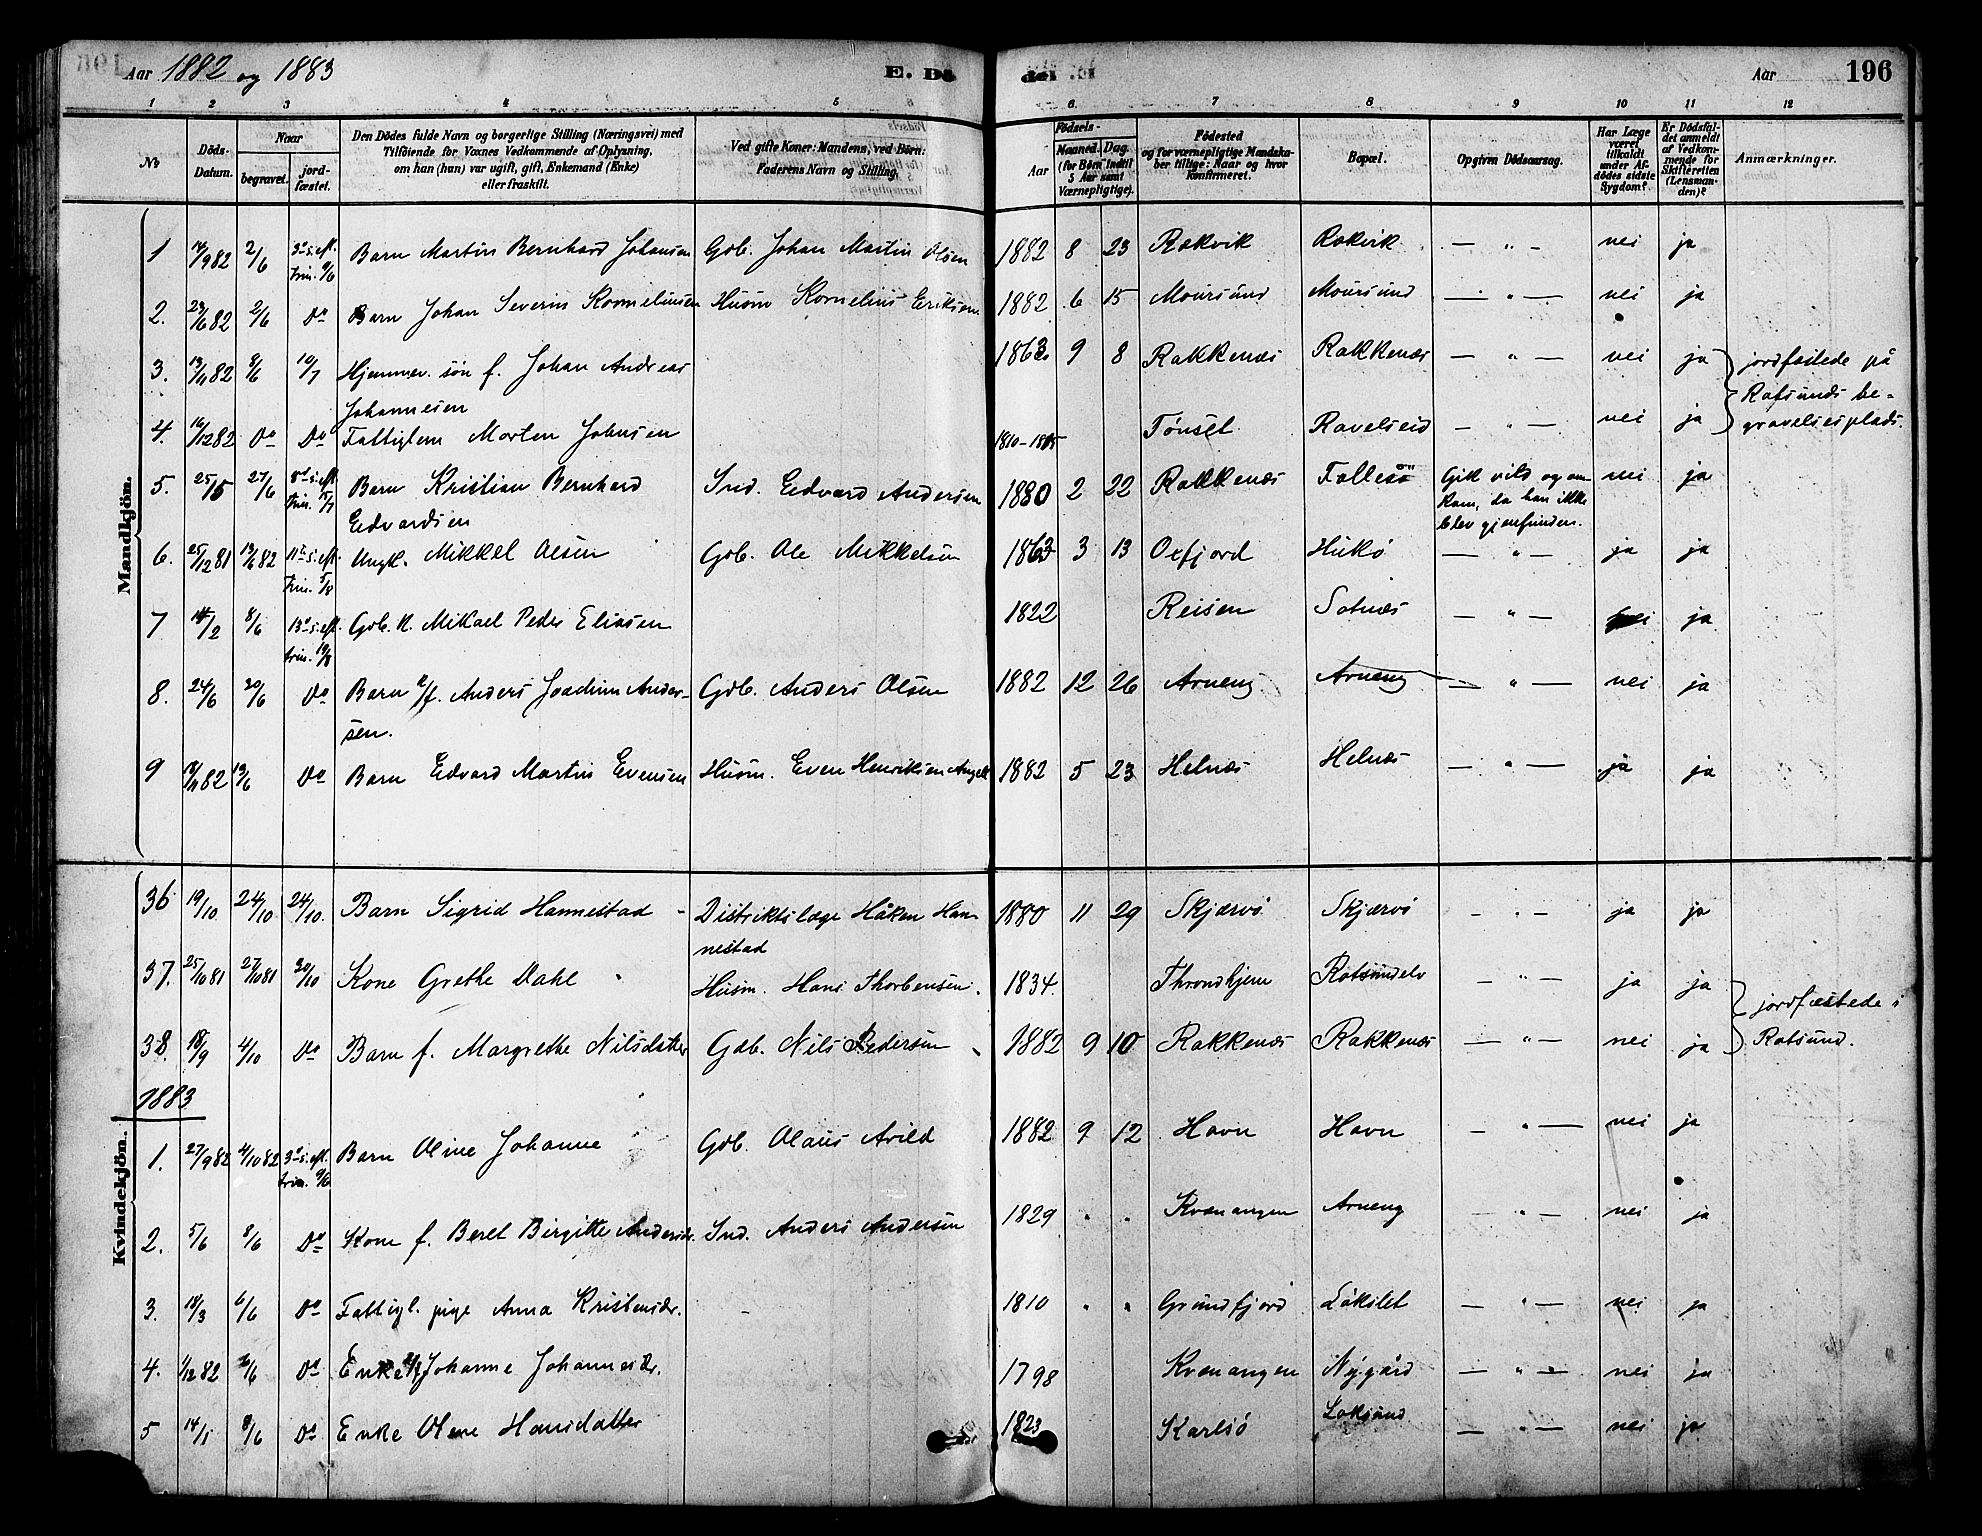 Aar 1882 og 1883
E. Dö
de
Aar
196
1 2 3 4 5 6 7 8 9 10 11 12
No
Döds-Datum.
Naar
begravet.
jord-fæstet.
Den Dödes fulde Navn og borgerlige Stilling (Næringsvei) med
Tilföiende for Voxnes Vedkommende af Oplysning,
om han (hun) var ugift, gift, Enkemand (Enke)
eller fraskilt.
Ved gifte Koner: Mandens, ved Börn:
Faderens Navn og Stilling.
Födsels-
Aar
Maaned. Dag.
(for Börn indtil
5 Aar samt
Værnepligtige).
Födested
og for værnepligtige Mandska-
ber tillige: Naar og hvor
konfirmeret.
Bopæl.
Opgiven Dödsaarsag.
Har Læge
været
tilkaldt
under Af-
dödes sidste
Sygdom?
Er Dödsfal-
det anmeldt
af Vedkom-
mende for
Skifteretten
(Lensman-
den)?
Anmærkninger.
Mandkjön.
1 14/9 82 2/6 3d s. eft. trin. 9/6 Barn Martin Bernhard Johansen Gdb. Johan Martin Olsen 1882 8 23 Rakvik Rakvik — " — nei ja
2. 23/6 82 2/6 Do Barn Johan Severin Kornelinsen Husm Kornelius Eriksen 1882 6 15 Moursund Moursund — " — nei ja
3. 13/11 82 8/6 10/7 Hjemmev. søn f. Johan Andreas 1863 9 8 Rakkenæs Rakkenæs — " — nei ja jordfæstede på
Johannesen
Rotsunds be-
4. 16/12 82 Do Do Fattiglem Morten Johnsen 1810-1815 Tønset Ravelseid — " — nei ja gravelsesplads.
5. 25/5 27/6 Barn Kristian Bernhard Ind. Edvard Andersen 1880 2 22 Rakkenæs Follesö Gik vild og om nei ja
Edvardsen
kom, da han ikke
blev gjenfunden.
6. 25/12 81 13/6 82 11te s. eft. trin. 5/8 Ungk. Mikkel Olsen Gdb. Ole Mikkelsen 1863 3 13 Oxfjord Hukø — " — ja ja
7 14/2 8/6 13d s. eft. trin. 19/8 Gdb. Mikael Peder Eliasen 1822 Reisen Sotnæs " — nei ja
8. 24/6 30/6 Do Barn u/f. Anders Joachim Ander- Gdb. Anders Olsen 1882 12 26 Arneng Arneng — " — nei ja
sen.
9 82 13/6 Do Barn Edvard Martin Evensen Husm. Even Henriksen Angell 1882 5 23 Helnæs Helnæs — " — ja ja
36 19/10 24/10 24/10. Barn Sigrid Hannestad Distriktslæge Håken Han- 1880 11 29 Skjærvö Skjærvö - " — ja ja
nestad
37. 25/10 81 27/10 81 30/10 Kone Grethe Dahl Husm. Hans Thorbensen. 1834. Throndhjem Rotsundelv " — ja ja jordfæstede i
38. 18/9 4/10 Do Barn f. Margrethe Nilsdatter Gdb. Nils Pedersen 1882 9 10 Rakkenæs Rakkenæs — " — nei ja Rotsund.
1883
Kvindekjön.
1. 27/9 82 4/10 82 3d s. eft. trin. 9/6 Barn Oline Johanne Gdb. Olaus Arild 1882 9 12 Havn Havn — " — nei ja
2. 5/6 8/6 Do Kone f. Beret Birgitte Andersdr. Ind. Anders Andersen 1829 " " Kvænangen Arneng — " — nei ja
3. 18/3 6/6 Do Fattigl. pige Anna Kristensdr. - 1810 " " Grundfjord — " — nei ja
4. 1/12 82 Do Enke Johanne Johannesdr. 1798 Kvænangen Nygård — " — nei ja
5 14/1 9/6 Do Enke Olene Hansdatter 1823 Karlsö Laksund — " — nei ja